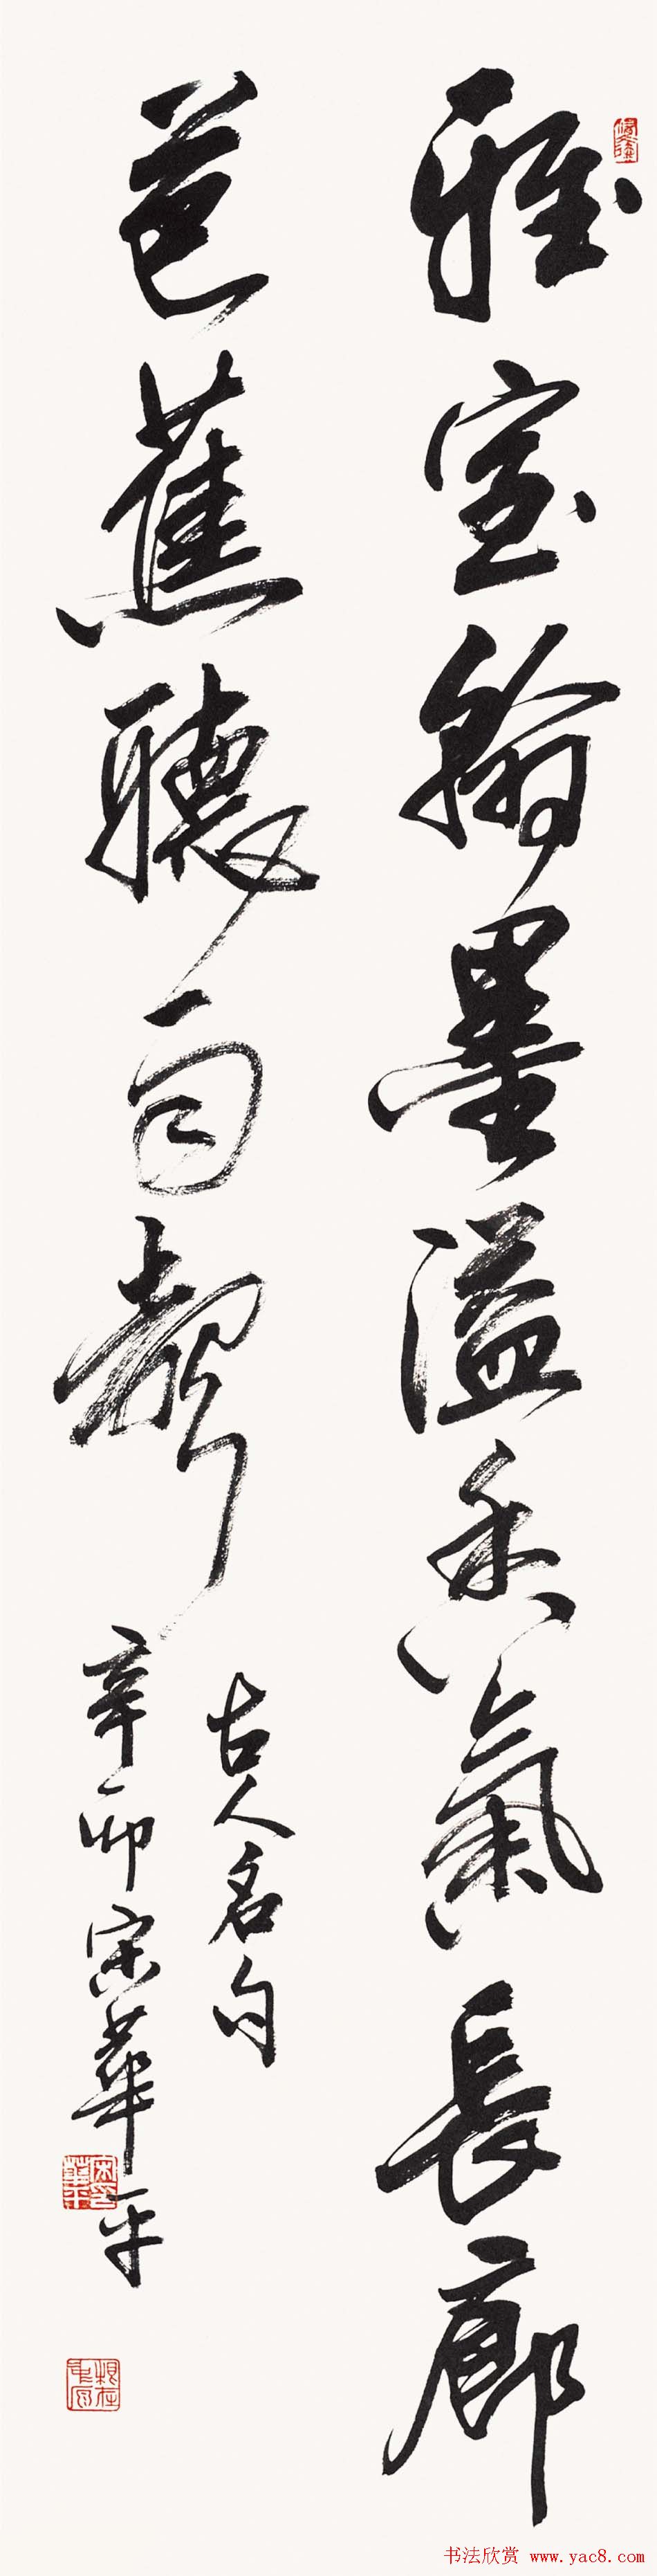 雅室翰墨溢香氣長廊
芭蕉聽雨聲
古人名句
辛卯宋華平
書法欣赏 www.yac8.com